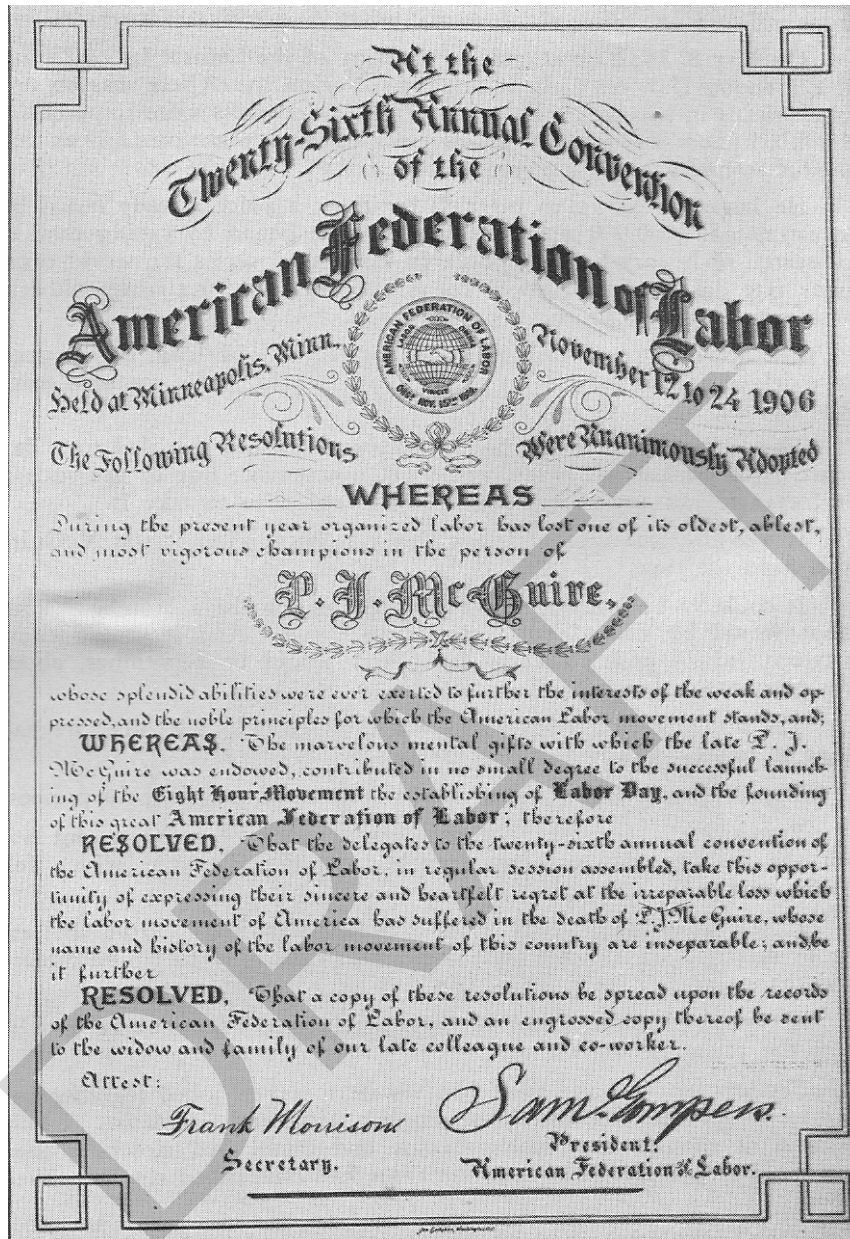 At the
Twenty-Sixth Annual Convention
of the
American Federation of Labor
Held at Minneapolis, Minn.
AMERICAN FEDERATION OF LABOR
November 12 to 24 1906
The Following Resolutions
Were Unanimously Adopted
WHEREAS
During the present year organized labor has lost one of its oldest, ablest,
and most vigorous champions in the person of
P. J. McGuire,
whose splendid abilities were ever exerted to further the interests of the weak and op-
pressed, and the noble principles for which the American Labor movement stands, and;
WHEREAS. The marvelous mental gifts with which the late P. J.
McGuire was endowed, contributed in no small degree to the successful launch-
ing of the Eight Hour Movement the establishing of Labor Day, and the founding
of this great American Federation of Labor; therefore
RESOLVED, That the delegates to the twenty-sixth annual convention of
the American Federation of Labor, in regular session assembled, take this oppor-
tunity of expressing their sincere and heartfelt regret at the irreparable loss which
the labor movement of America has suffered in the death of P. J. McGuire, whose
name and history of the labor movement of this country are inseparable; and, be
it further
RESOLVED, That a copy of these resolutions be spread upon the records
of the American Federation of Labor, and an engrossed copy thereof be sent
to the widow and family of our late colleague and co-worker.
Attest:
Frank Morrison
Saml Gompers.
Secretary.
President.
American Federation of Labor.
DRAFT